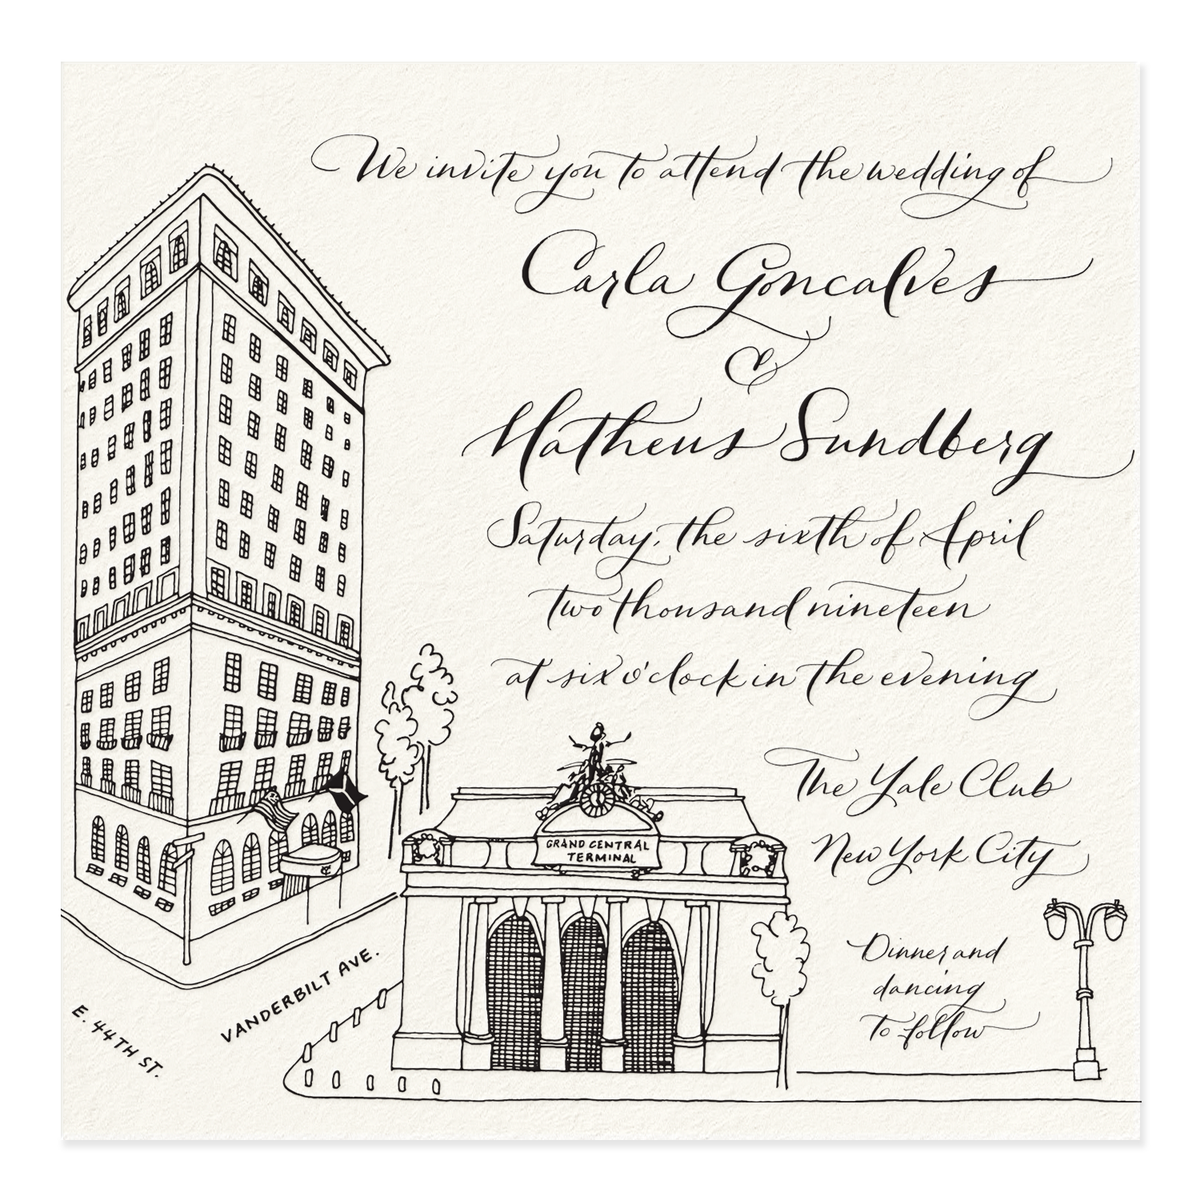 We invite you to attend the wedding of
Carla Goncalves
&
Matheus Sundberg
Saturday, the sixth of April
two thousand nineteen
at six o'clock in the evening
The Yale Club
New York City
Dinner and
dancing
to follow
GRAND CENTRAL
TERMINAL
VANDERBILT AVE.
E. 44TH ST.